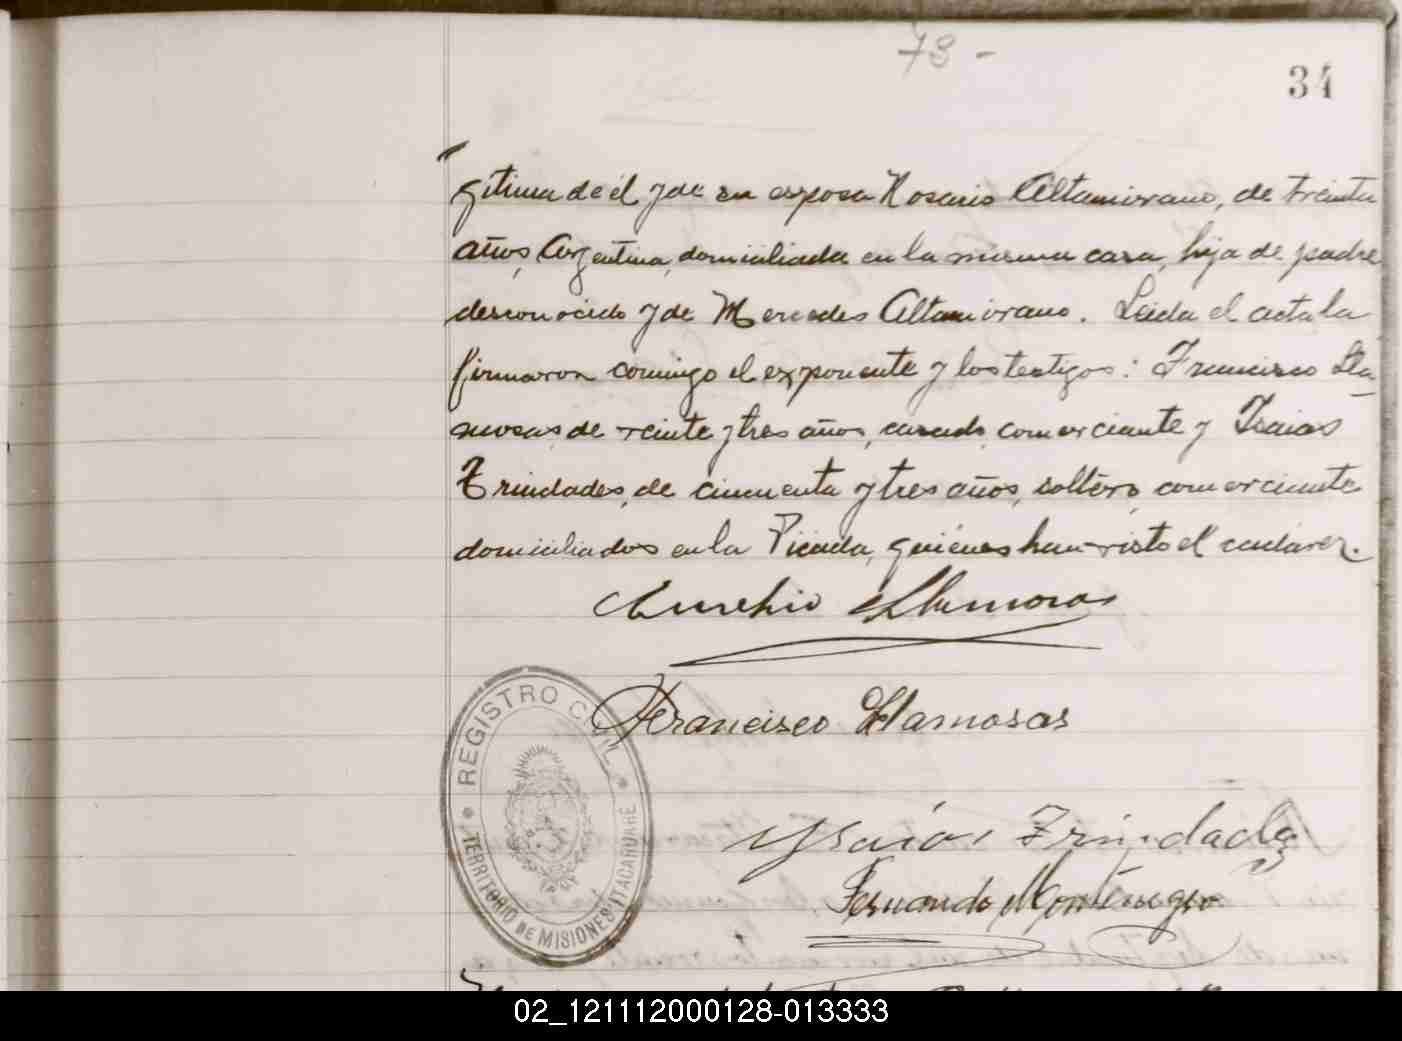 73 -
34
gitima de él y de su esposa Rosario Altamirano, de treinta
años, Argentina, domiciliada en la misma casa, hija de padre
desconocido y de Mercedes Altamirano. Leida el acta la
firmaron conmigo el exponente y los testigos: Francisco Lla-
mosas, de veinte y tres años, casado, comerciante y Isaias
Trindades, de cincuenta y tres años, soltero, comerciante
domiciliados en la Picada, quiénes han visto el cadáver.
Aurelio Llamosas
Francisco Llamosas
Ysaias Trindade
Fernando Montenegro
REGISTRO CIVIL
TERRITORIO DE MISIONES ITACARUARÉ
02_121112000128-013333